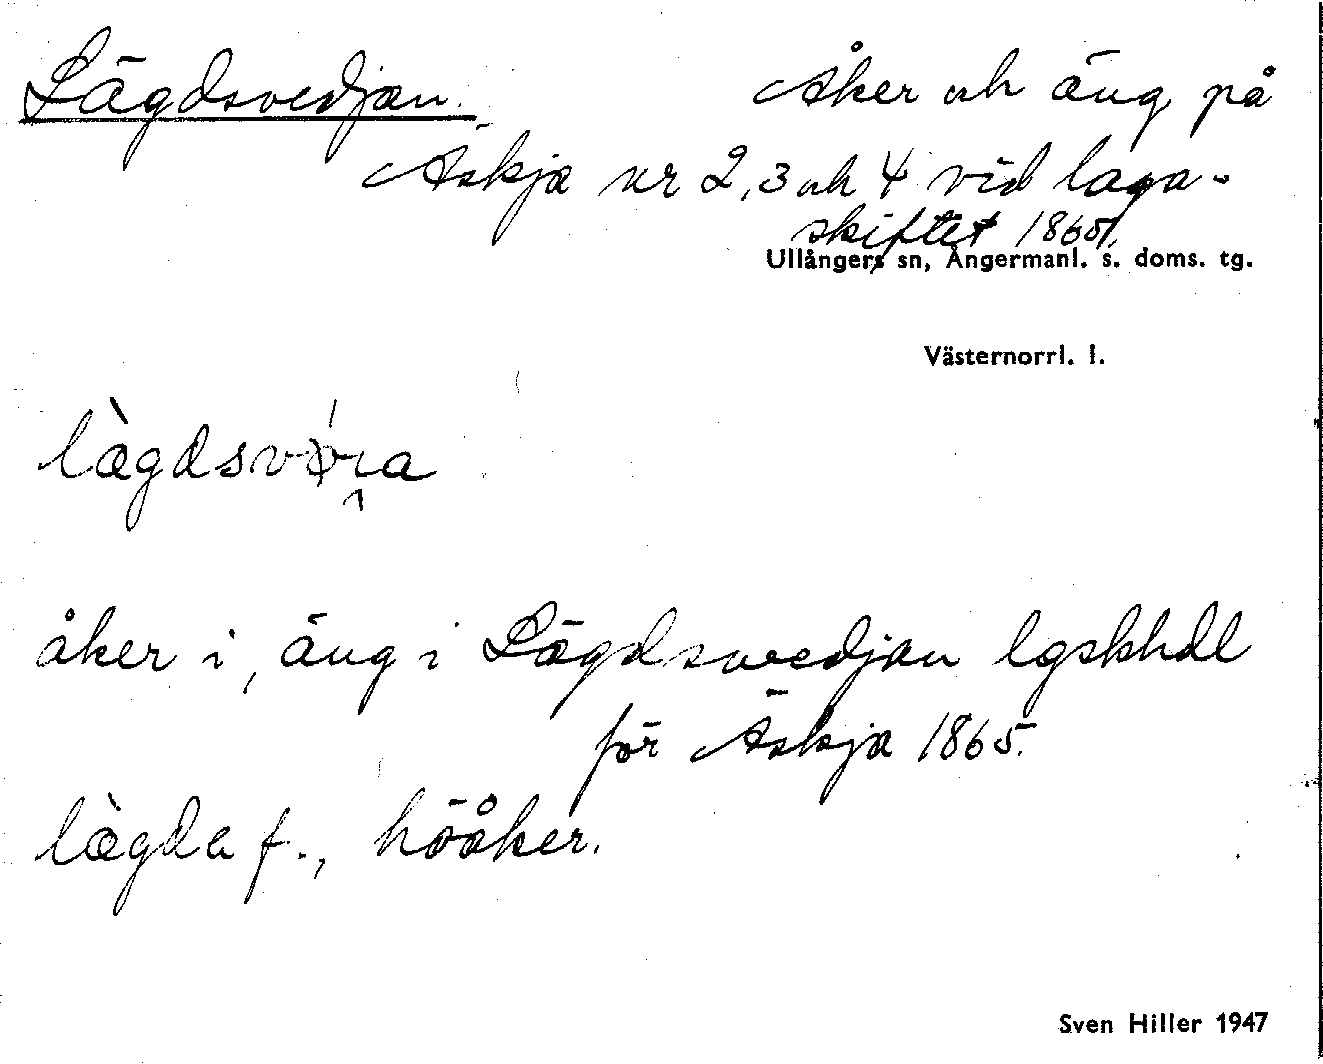 Lägdsvedjan. Åker och äng på
Äskja nr 2, 3 och 4 vid laga-
skiftet 1865.
Ullångers sn, Ångermanl. s. doms. tg.
Västernorrl. l.
åker i, äng i Lägdsvedjan lgskhdl
för Äskja 1865.
lægda f., höåker.
Sven Hiller 1947